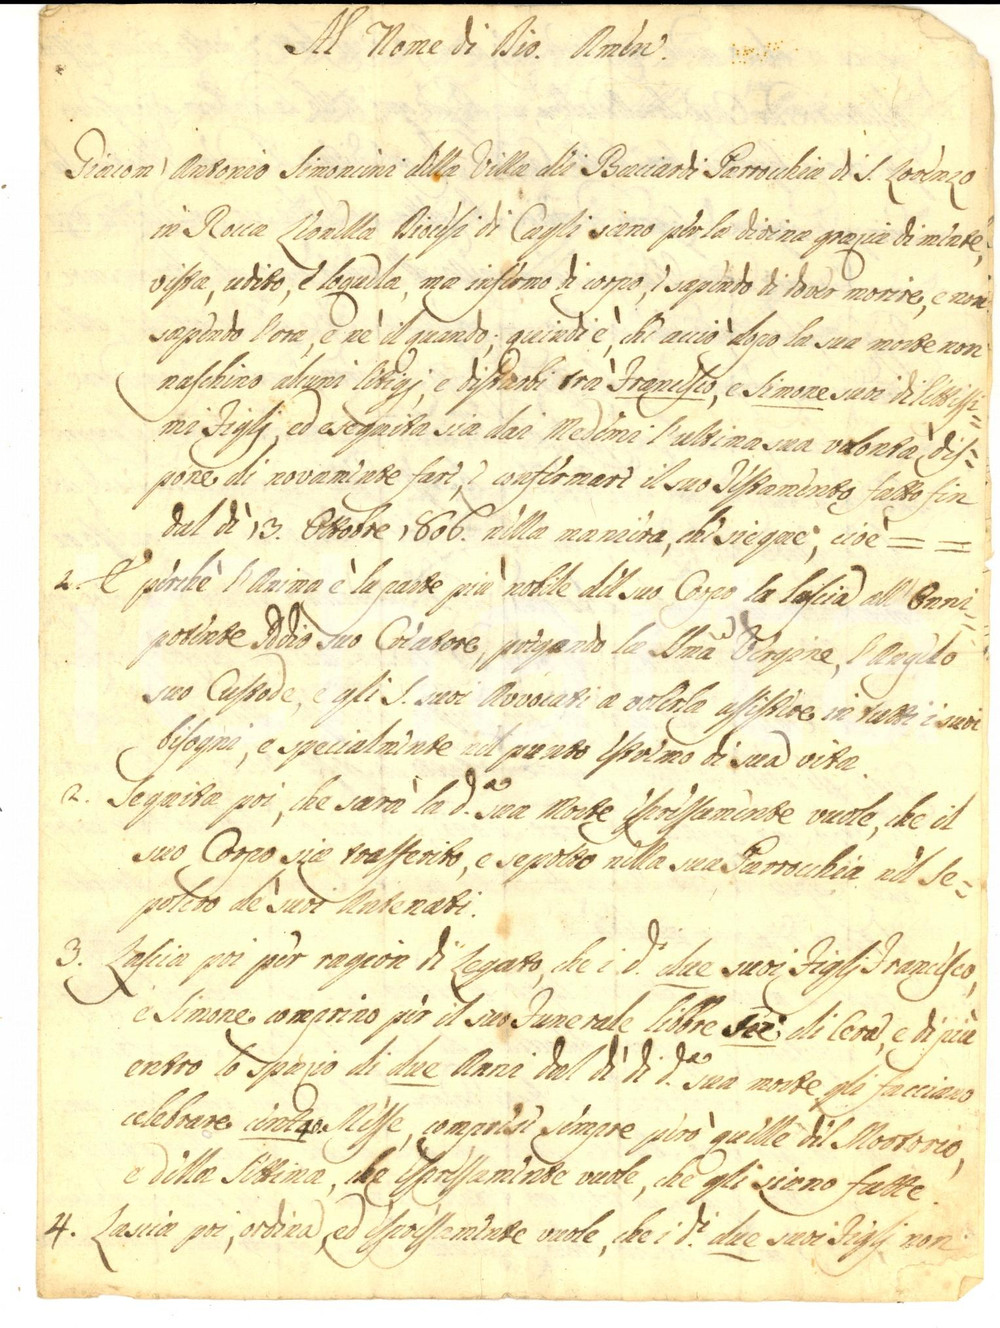 Al Nome di Dio. Amen.
Giacom' Antonio Simoncini della Villa dei Bacciardi Parrocchia di S. Lorenzo
in Rocca Leonella Diocesi di Cagli sano per la divina grazia di mente,
vista, udito, e loquela, ma infermo di corpo, e sapendo di dover morire, e non
sapendo l'ora, e nè il quando; quindi è, che acciò dopo la sua morte non
naschino alcuni litigj, e disturbi trà Francesco, e Simone suoi dilettissi=
mi Figlj, ed eseguita sia dai Medemi l'ultima sua volontà, dis=
pone di novamente fare, e confermare il suo Testamento fatto fin
dal dì 13. Ottobre 1806. nella maniera, che siegue; cioè = =
1. E perchè l'Anima è la parte più nobile del suo Corpo la lascia all'Onni=
potente Iddio suo Creatore, pregando la Bma Vergine, l'Angelo
suo Custode, e gli S. suoi Avvocati a volerla assistere in tutti i suoi
bisogni, e specialmente nel punto estremo di sua vita.
2. Seguita poi, che sarà la d.a sua Morte espressamente vuole, che il
suo Corpo sia trasferito, e sepolto nella sua Parrocchia nel Se=
polcro de' suoi Antenati.
3. Lascia poi per ragion di Legato, che i d.i due suoi Figlj Francesco,
e Simone comprino per il suo Funerale libbre sei di Cera, e di più
entro lo spazio di due Anni dal dì di d.a sua morte gli facciano
celebrare Messe, comprese sempre però quelle del Mortorio,
e della Settima, che espressamente vuole, che gli siano fatte.
4. Lascia poi, ordina, ed espressamente vuole, che i d.i due suoi Figlj non